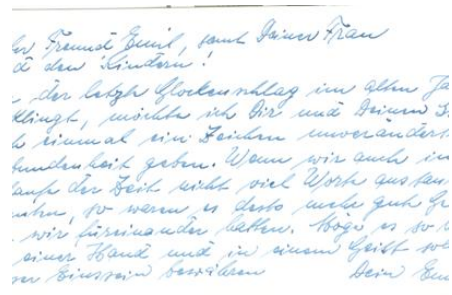 er Freund Emil, samt Deiner Frau
d den Kindern!
der letzte Glockenschlag im alten Ja
klingt, möchte ich Dir und Deinen
h einmal ein Zeichen unverändert
bundenheit geben. Wenn wir auch im
aufe der Zeit nicht viel Worte austau
schten, so waren es desto mehr gute G
wir füreinander hatten. Möge es so
einer Hand und in einem Geist
ser Einssein bewähren Dein Em